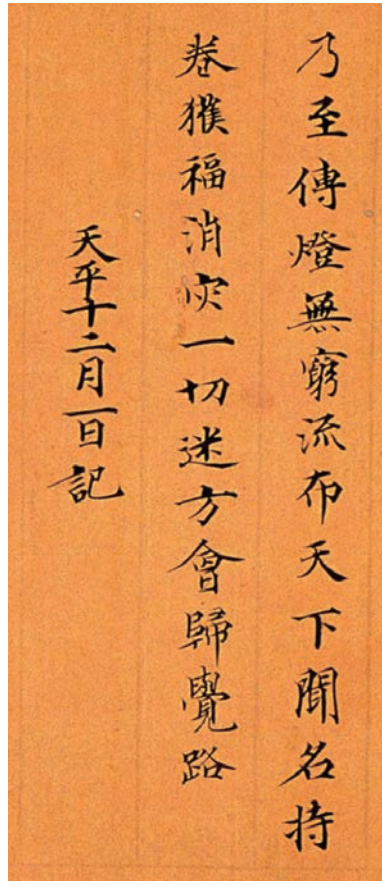 乃至傳燈無窮流布天下聞名持
卷獲福消灾一切迷方會歸覺路
天平十二月一日記